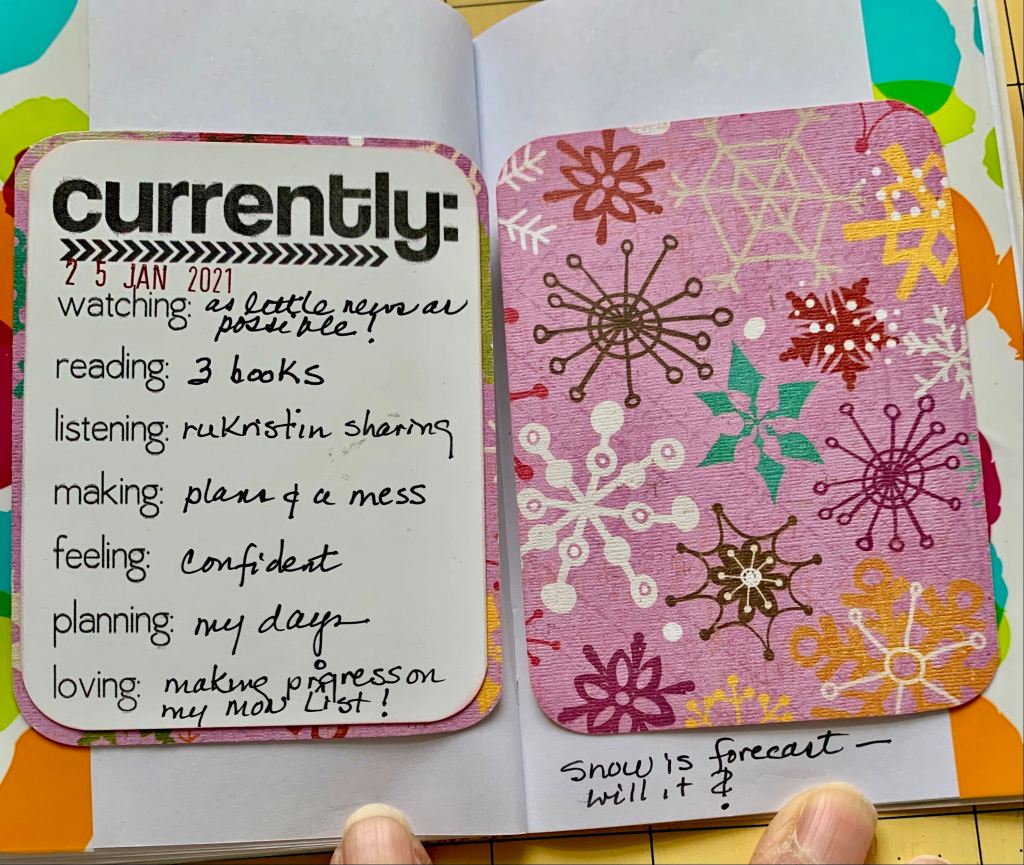 currently:
25 JAN 2021
watching: as little news as
possible!
reading: 3 books
listening: rukristin sharing
making: plans & a mess
feeling: confident
planning: my days
loving: making progress on
my MON LIST!
Snow is forecast —
will it ?